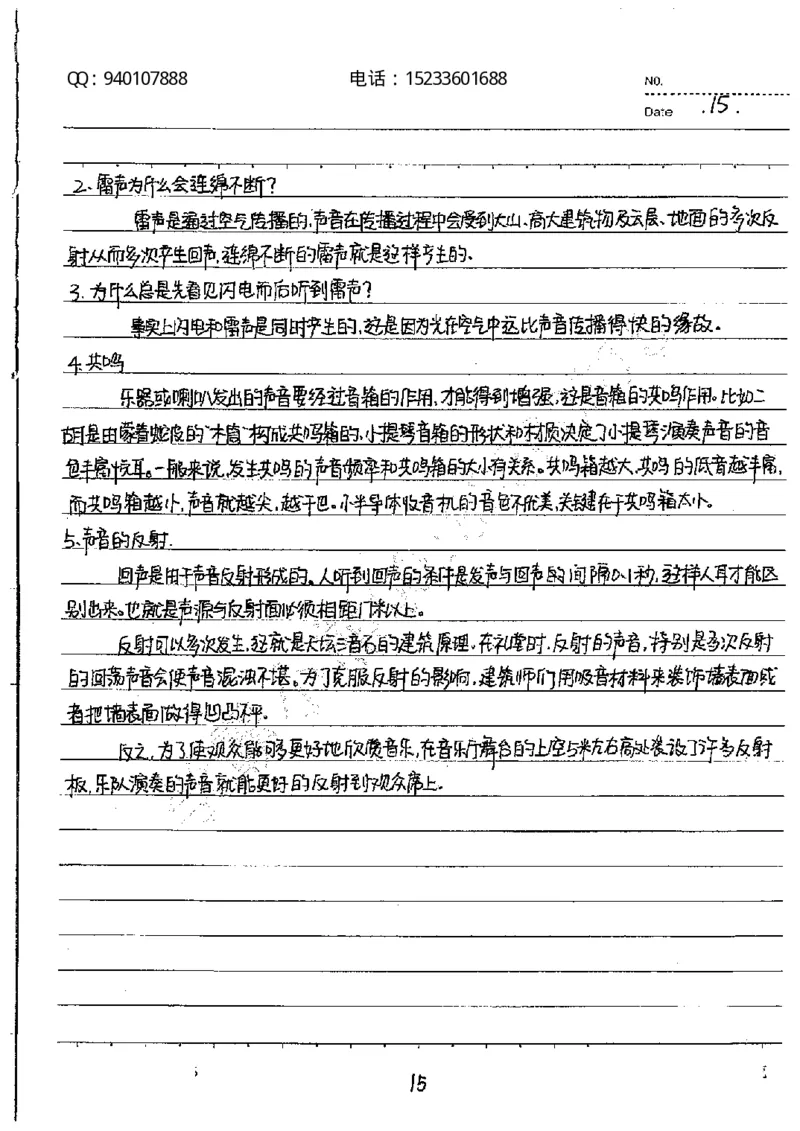 QQ：940107888 电话：15233601688 No.
Date .15.
2、雷声为什么会连绵不断？
雷声是通过空气传播的，声音在传播过程中会受到大山、高大建筑物及云层、地面的多次反
射从而多次产生回声，连绵不断的雷声就是这样产生的、
3、为什么总是先看见闪电而后听到雷声？
事实上闪电和雷声是同时产生的，这是因为光在空气中远比声音传播得快的缘故。
4、共鸣
乐器或喇叭发出的声音要经过音箱的作用，才能得到增强，这是音箱的共鸣作用。比如二
胡是由蒙着蛇皮的“木筒”构成共鸣箱的，小提琴音箱的形状和材质决定了小提琴演奏声音的音
色丰富悦耳。一般来说，发生共鸣的声音频率和共鸣箱的大小有关系。共鸣箱越大，共鸣的低音越丰富，
而共鸣箱越小，声音就越尖，越干巴。小半导体收音机的音色不优美，关键在于共鸣箱太小。
5、声音的反射.
回声是由于声音反射形成的。人听到回声的条件是发声与回声的间隔0.1秒，这样人耳才能区
别出来。也就是声源与反射面必须相距17米以上。
反射可以多次发生，这就是天坛三音石的建筑原理。在礼堂时，反射的声音，特别是多次反射
的回荡声音会使声音混浊不堪。为了克服反射的影响，建筑师们用吸音材料来装饰墙表面或
者把墙表面做得凹凸不平。
反之，为了使观众能够更好地欣赏音乐，在音乐厅舞台的上空5米左右高处装设了许多反射
板，乐队演奏的声音就能更好的反射到观众席上。
15